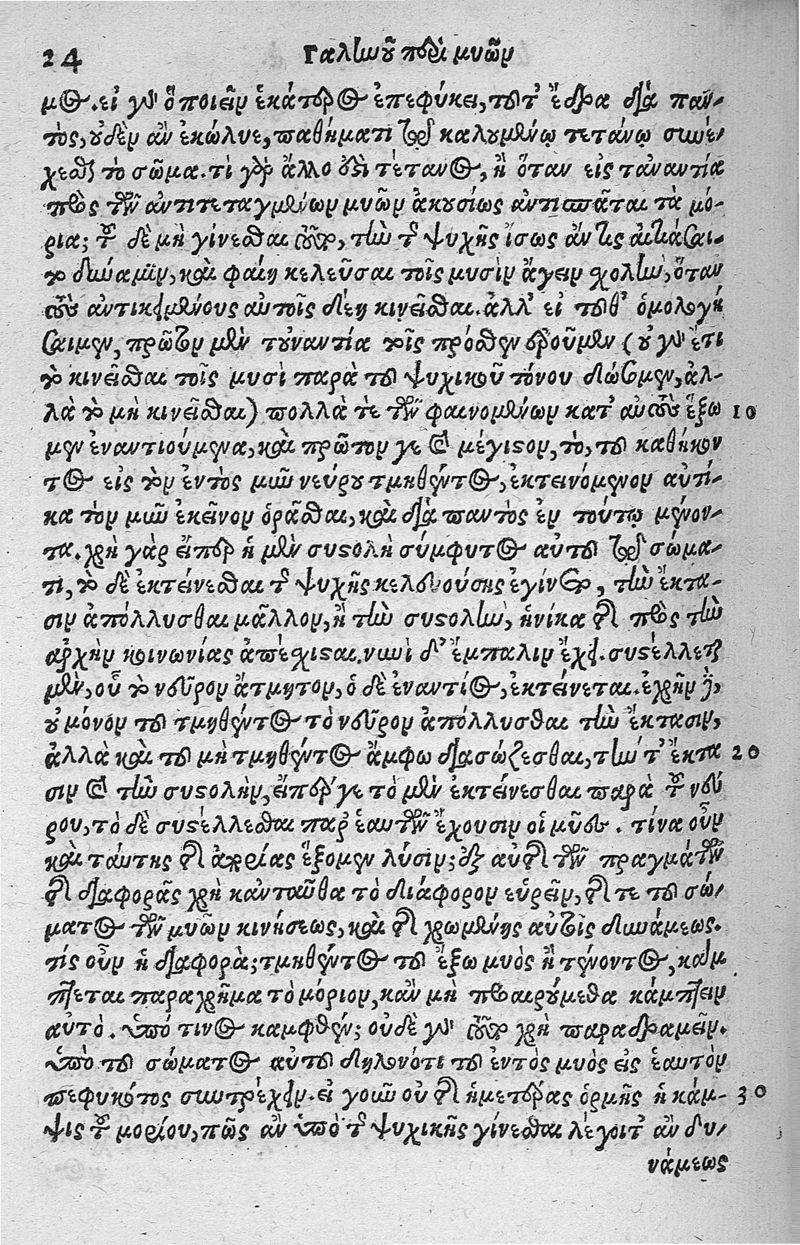 24 Γαληνοῦ περὶ μυῶν
μος. εἰ γὰρ ὃ ποιεῖν ἑκάτερος ἐπεφύκει, τοῦτ' ἔδρα διὰ παν-
τὸς, οὐδὲν ἂν ἐκώλυε, παθήματι τῷ καλουμένῳ τετάνῳ συνέ-
χεσθαι τὸ σῶμα. τί γὰρ ἄλλο ἐστὶ τέτανος, ἢ ὅταν εἰς τἀναντία
πρὸς τῶν ἀντιτεταγμένων μυῶν ἀκουσίως ἀντισπᾶται τὰ μό-
ρια; τοῦ δὲ μὴ γίνεσθαι τοῦτο, τὴν τῆς ψυχῆς ἴσως ἄν τις αἰτιάσαι-
το δύναμιν, καὶ φαίη κελεῦσαι τοῖς μυσὶν ἄγειν σχολὴν, ὅταν
τοὺς ἀντικειμένους αὐτοῖς δέῃ κινεῖσθαι. ἀλλ' εἰ τοῦθ' ὁμολογή
σαιμεν, πρῶτον μὲν τοὐναντία τοῖς πρόσθεν ἐροῦμεν (οὐ γὰρ ἔτι
τὸ κινεῖσθαι τοῖς μυσὶ παρὰ τοῦ ψυχικοῦ τόνου δώσομεν, ἀλ-
λὰ τὸ μὴ κινεῖσθαι) πολλὰ τὲ τῶν φαινομένων κατ' αὐτοὺς ἕξο 10
μεν ἐναντιούμενα, καὶ πρῶτον γε καὶ μέγιστον, τὸ, τοῦ καθήκον
τος εἰς τὸν ἐντὸς μῦν νεύρου τμηθέντος, ἐκτεινόμενον αὐτί-
κα τὸν μῦν ἐκεῖνον ὁρᾶσθαι, καὶ διὰ παντὸς ἐν τούτῳ μένον-
τα. χρὴ γὰρ εἴπερ ἡ μὲν συστολὴ σύμφυτος αὐτοῦ τῷ σώμα-
τι, τὸ δὲ ἐκτείνεσθαι τῆς ψυχῆς κελευούσης ἐγίνετο, τὴν ἔκτα-
σιν ἀπόλλυσθαι μᾶλλον, ἢ τὴν συστολὴν, ἡνίκα τῆς πρὸς τὴν
ἀρχὴν κοινωνίας ἀπέσχισται. νυνὶ δ' ἔμπαλιν ἔχει. συστέλλεται
μὲν, οὗ τὸ νεῦρον ἄτμητον, ὁ δὲ ἐναντίος, ἐκτείνεται. ἐχρῆν δὲ,
οὐ μόνον τοῦ τμηθέντος τὸ νεῦρον ἀπόλλυσθαι τὴν ἔκτασιν,
ἀλλὰ καὶ τοῦ μὴ τμηθέντος ἄμφω διασώζεσθαι, τὴν τ' ἔκτα 20
σιν καὶ τὴν συστολὴν, εἴπερ γε τὸ μὲν ἐκτείνεσθαι παρὰ τοῦ νεύ
ρου, τὸ δὲ συστέλλεσθαι παρ' ἑαυτῶν ἔχουσιν οἱ μῦες. τίνα οὖν
καὶ ταύτης τῆς ἀπορίας ἕξομεν λύσιν; ἐξ αὐτῆς τῶν πραγμάτων
τῆς διαφορᾶς χρὴ κἀνταῦθα τὸ διάφορον εὑρεῖν, τῆς τε τοῦ σώ-
ματος τῶν μυῶν κινήσεως, καὶ τῆς χρωμένης αὐτοῖς δυνάμεως.
τίς οὖν ἡ διαφορά; τμηθέντος τοῦ ἔξω μυὸς ἢ τένοντος, καμ
πτεται παραχρῆμα τὸ μόριον, κἂν μὴ προαιρούμεθα κάμπτειν
αὐτό. ὑπό τινος καμφθέν; οὐδὲ γὰρ τοῦτο χρὴ παραδραμεῖν.
ὑπὸ τοῦ σώματος αὐτοῦ δηλονότι τοῦ ἐντὸς μυὸς εἰς ἑαυτὸν
πεφυκότος συντρέχειν. εἰ γοῦν οὐ τῆς ἡμετέρας ὁρμῆς ἡ κάμ- 30
ψις τοῦ μορίου, πῶς ἂν ὑπὸ τῆς ψυχικῆς γίνεσθαι λέγοιτ' ἂν δυ-
νάμεως